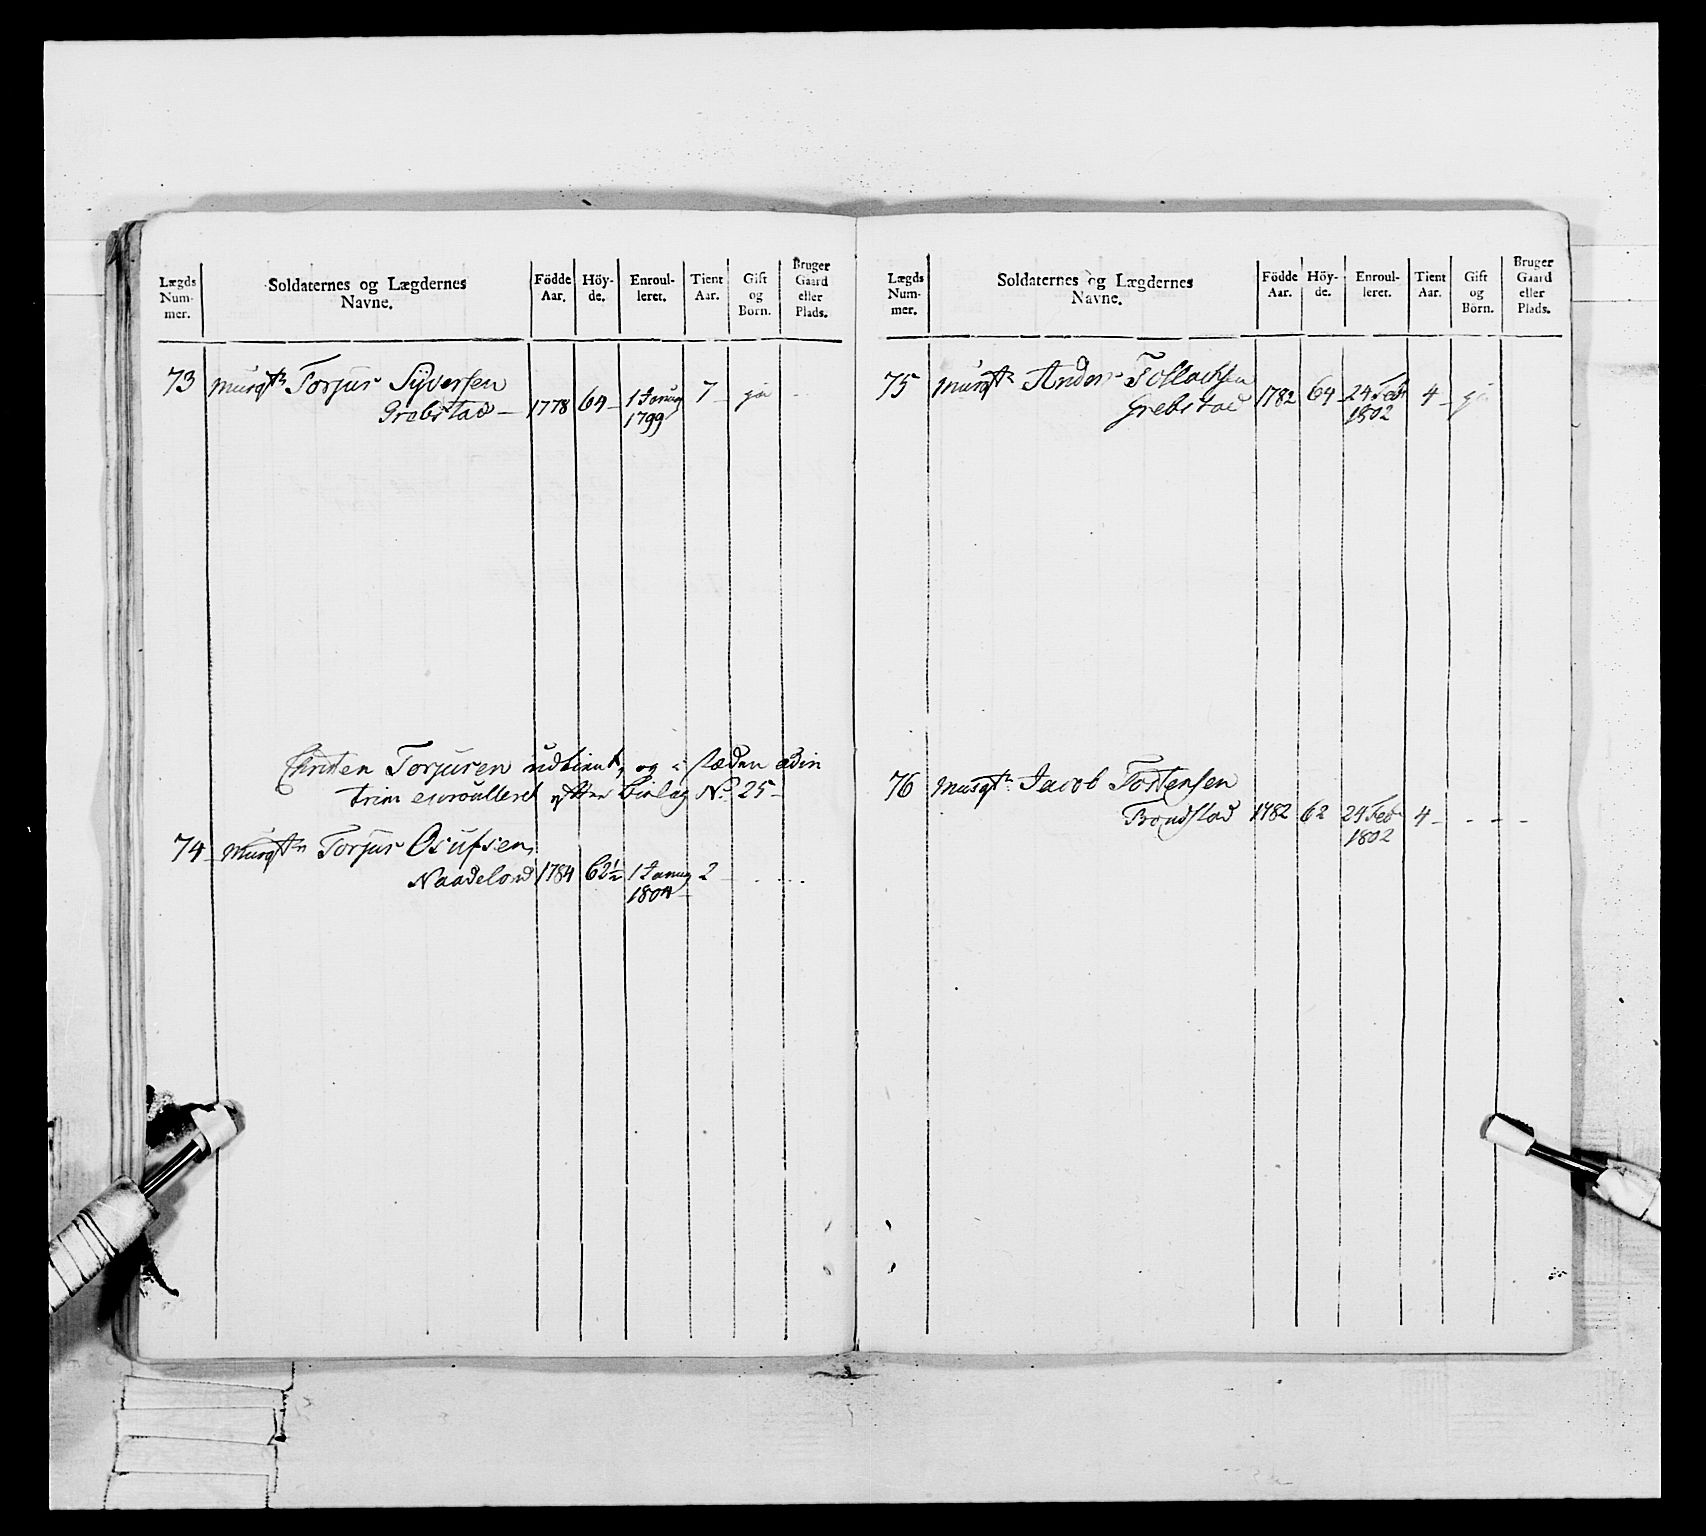 Lægds Num- mer.
Soldaternes og Lægdernes Navne.
Födde Aar.
Höy- de.
Enroul- leret.
Tient Aar.
Gift og Börn.
Bruger Gaard eller Plads.
73 Musqtr Torjus Syversen
Grebstad – 1778 64 – 1 Janug 7 – gia –
1799
Christen Torjusen udtient, og i stæden
enroulleret efter Bielag No. 25 –
74 – Musqtr Torjus Osufsen
Naadeland 1784 62½ 1 Janug 2 – . . .
1804 –
Lægds Num- mer.
Soldaternes og Lægdernes Navne.
Födde Aar.
Höy- de.
Enroul- leret.
Tient Aar.
Gift og Börn.
Bruger Gaard eller Plads.
75 Musqtr Anders Tollachsen
Grebstad 1782 64 – 24 Febr 4 –
1802
76 Musqtr Jacob Tostensen
1782 62 24 Febr 4 – . – –
1802